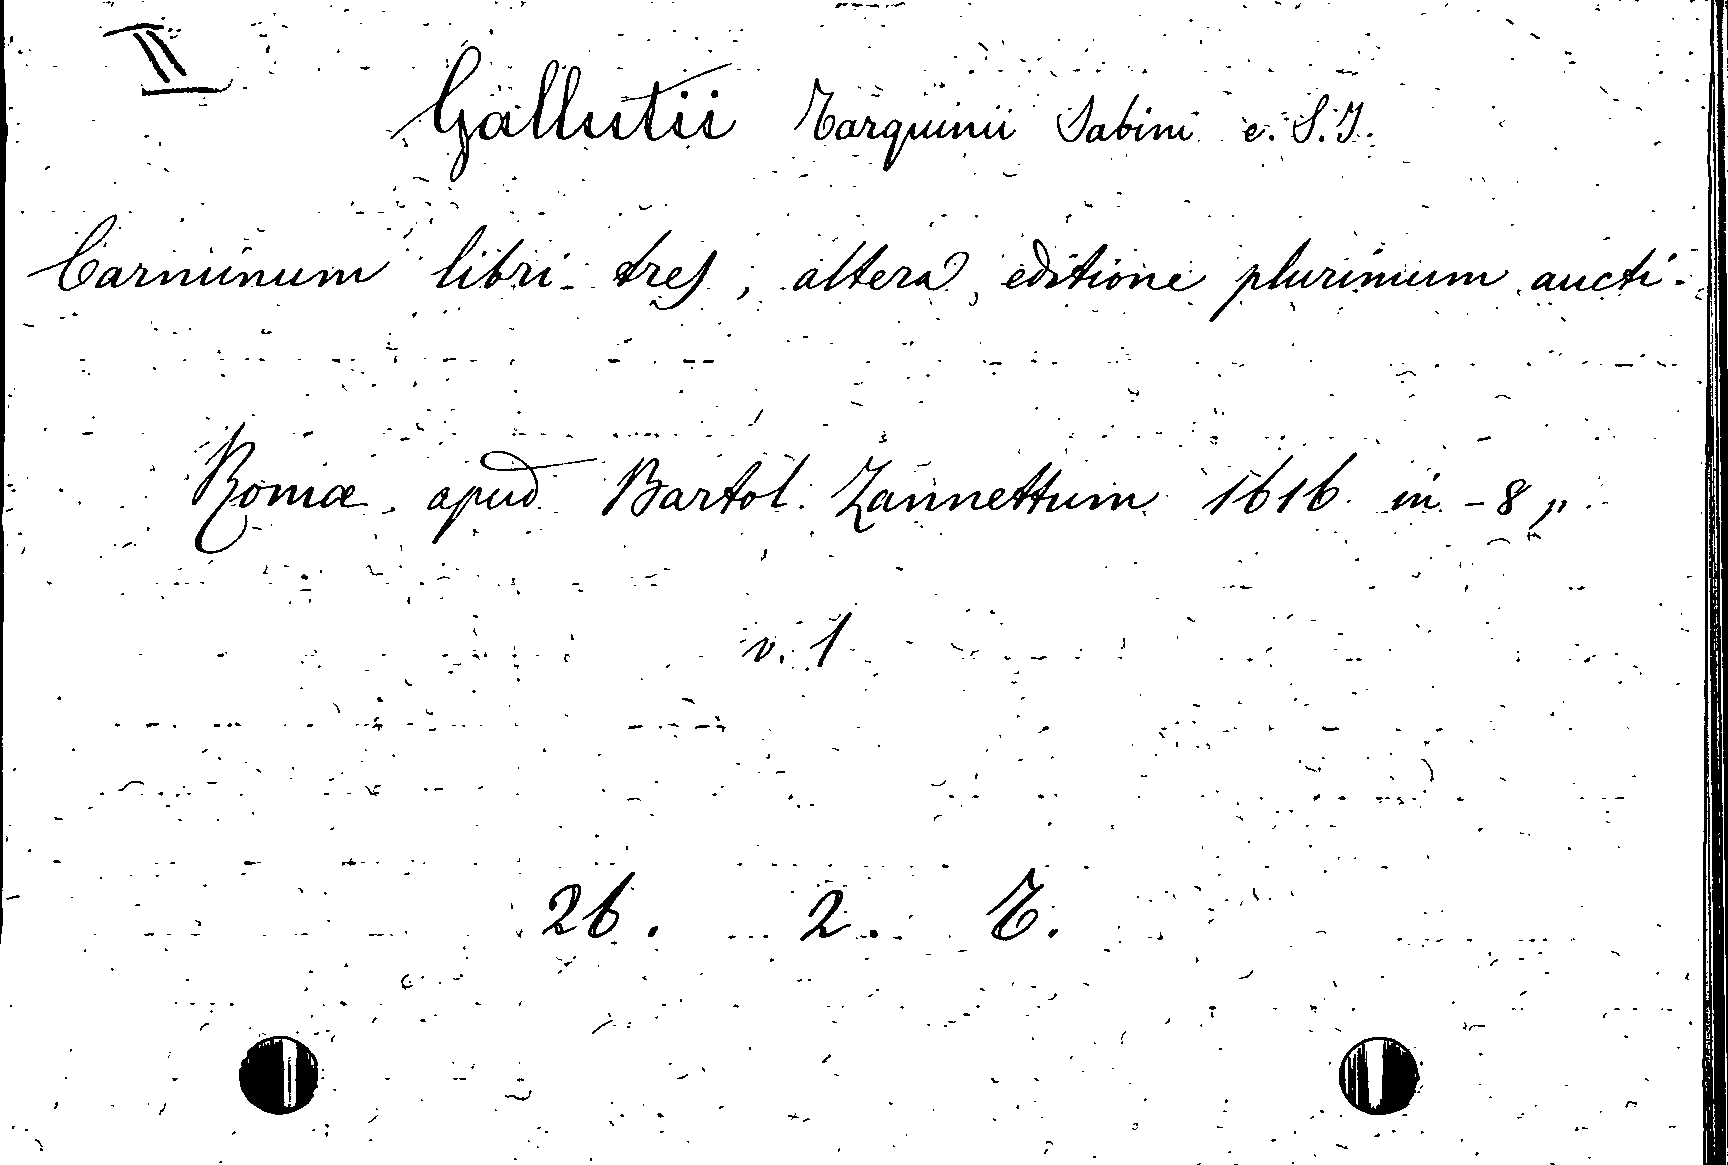 II
Gallutii Tarquinii Sabini e. S. J.
Carminum libri tres, altera editione plurimum aucti.
Romæ apud Bartol. Zannettum 1616 in-8„.
v. 1
26. 2. T.